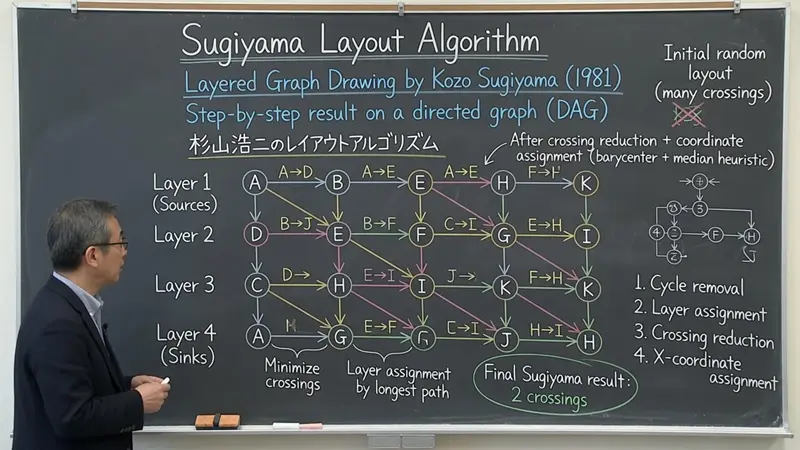 Sugiyama Layout Algorithm
Layered Graph Drawing by Kozo Sugiyama (1981)
Step-by-step result on a directed graph (DAG)
杉山浩二のレイアウトアルゴリズム
Initial random
layout
(many crossings)
After crossing reduction + coordinate
assignment (barycenter + median heuristic)
Layer 1
(Sources)
A A→D B A→E E A→E H F→ K
Layer 2
D B→J E B→F F C→I G E→H I
Layer 3
C D→ H E→I I J→ K F→H K
Layer 4
(Sinks)
A G E→F C→I J H→I H
Minimize
crossings
Layer assignment
by longest path
Final Sugiyama result:
2 crossings
3
4
F
H
1. Cycle removal
2. Layer assignment
3. Crossing reduction
4. X-coordinate
assignment